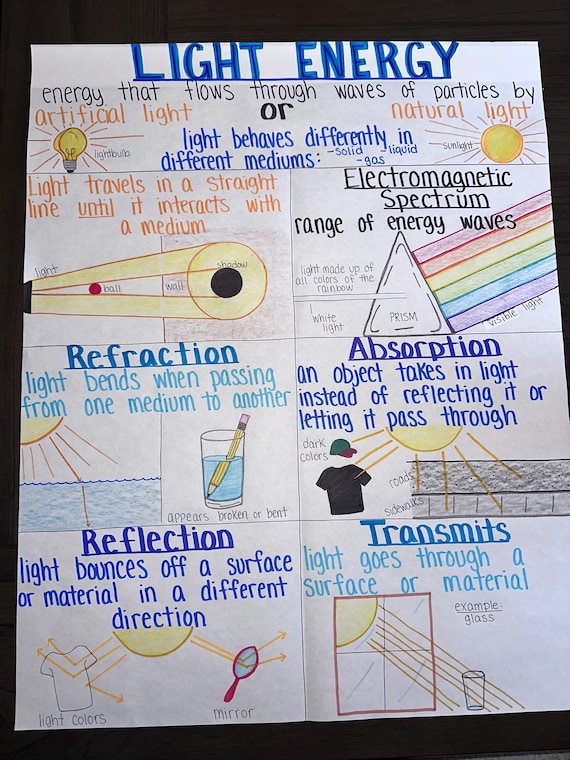 LIGHT ENERGY
energy that flows through waves of particles by
artificial light
OR
natural light
lightbulb
light behaves differently in
different mediums: -solid -liquid
-gas
sunlight
Light travels in a straight
line until it interacts with
a medium
light
ball
wall
shadow
Electromagnetic
Spectrum
range of energy waves
light made up of
all colors of the
rainbow
white
light
PRISM
visible light
Refraction
light bends when passing
from one medium to another
appears broken or bent
Absorption
an object takes in light
instead of reflecting it or
letting it pass through
dark
colors
roads
sidewalks
Reflection
light bounces off a surface
or material in a different
direction
light colors
mirror
Transmits
light goes through a
surface or material
example:
glass